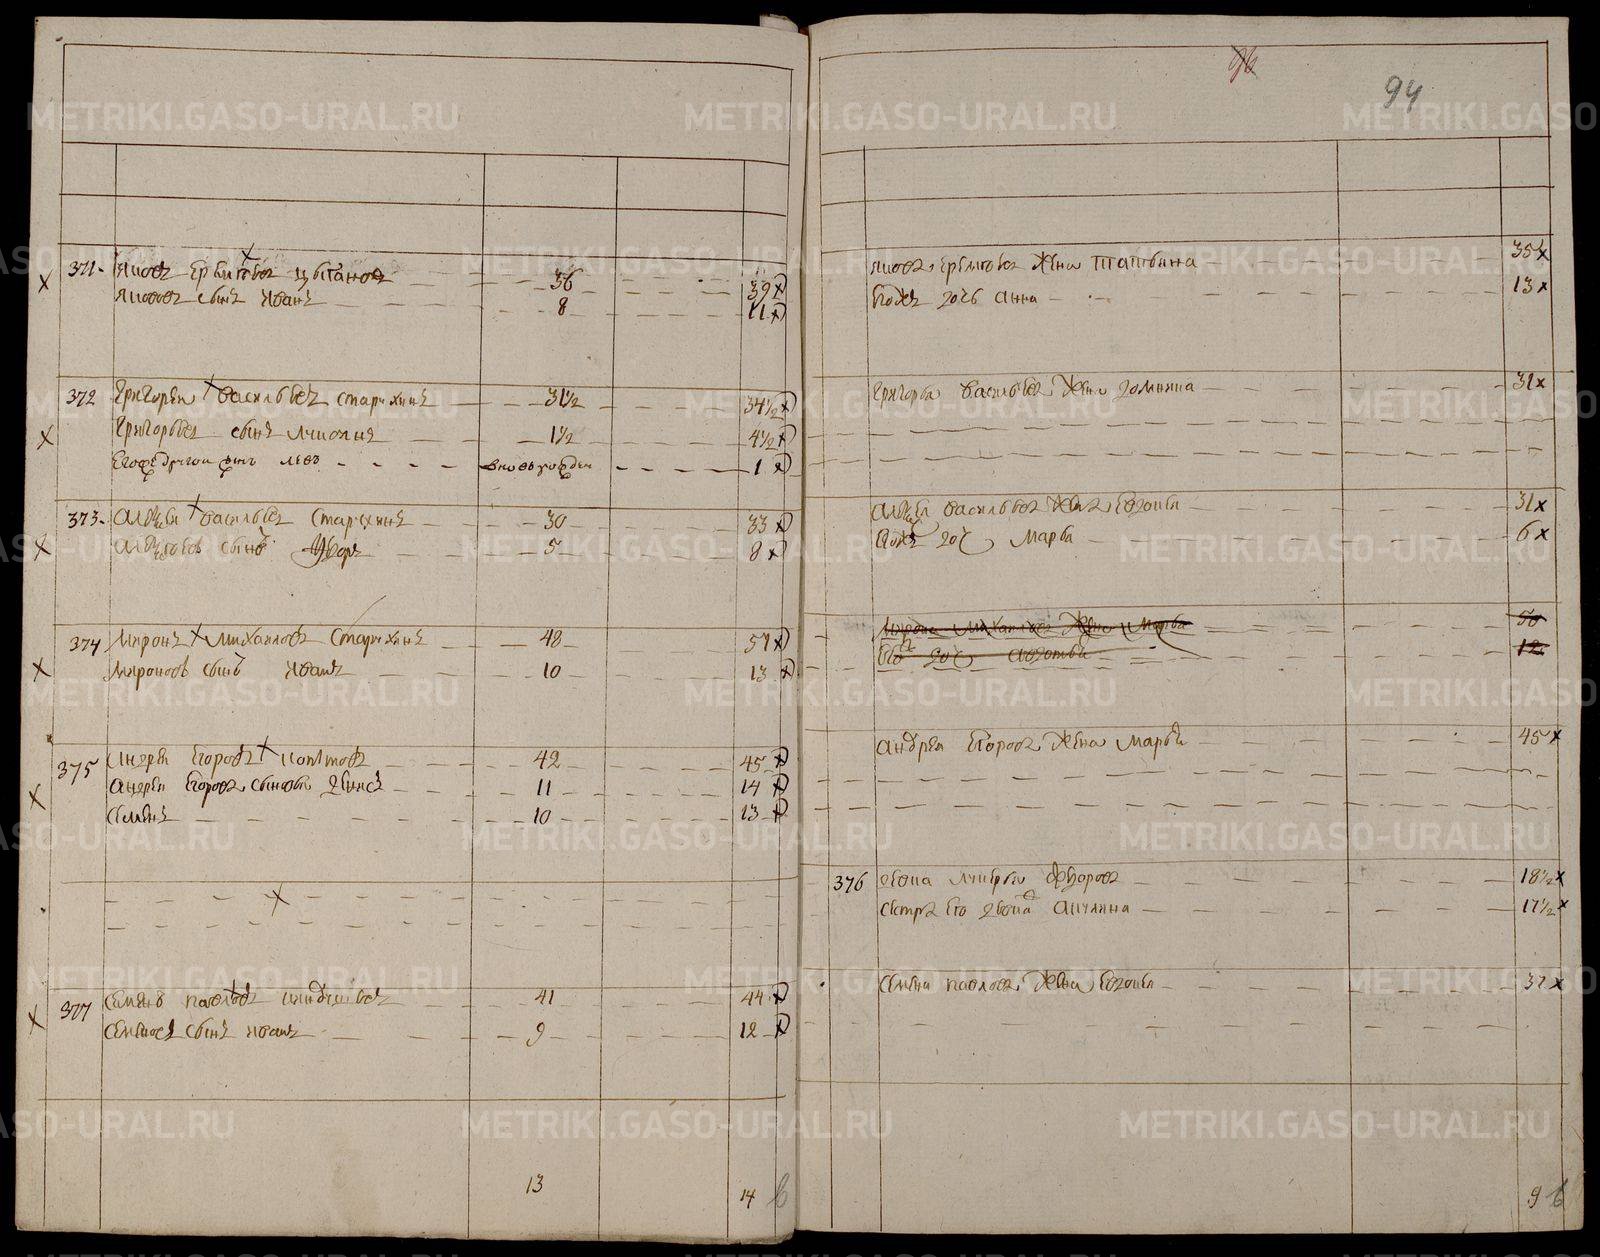 96
94
371. Яковъ Ермиловъ Цыгановъ 36 39
Яковов сынъ Иванъ 8 11
372 Григорей Васильевъ Старухинъ 31½ 34½
Григорьев сынъ 1½ 4½
Его же другой сынъ Левъ вновь рожден 1
373. Алексеи Васильевъ Старухинъ 30 33
Алексеевъ сынъ 5 8
374 Миронъ Михаиловъ Старухинъ 48 51
Мироновъ сынъ Иванъ 10 13
375 Андреи Егоровъ 42 45
Андрея Егорова сыновья Денисъ 11 14
Семенъ 10 13
377 Семенъ Павловъ 41 44
Семеновъ сынъ Иванъ 9 12
13 14
Якова Ермилова жена 35½
Ево ж дочь Анна 13
Григорья Васильева жена Домнина 31
Алексея Васильева жена Евдокия 31
Ево ж доч Марфа 6
Мирона Михаилова жена Марфа 50
Ево доч Авдотья 12
Андрея Егорова жена Марья 45
376 девка Федорова 18½
сестра его девка Акулина 17½
Семена Павлова жена Евдокия 37
9
METRIKI.GASO-URAL.RU